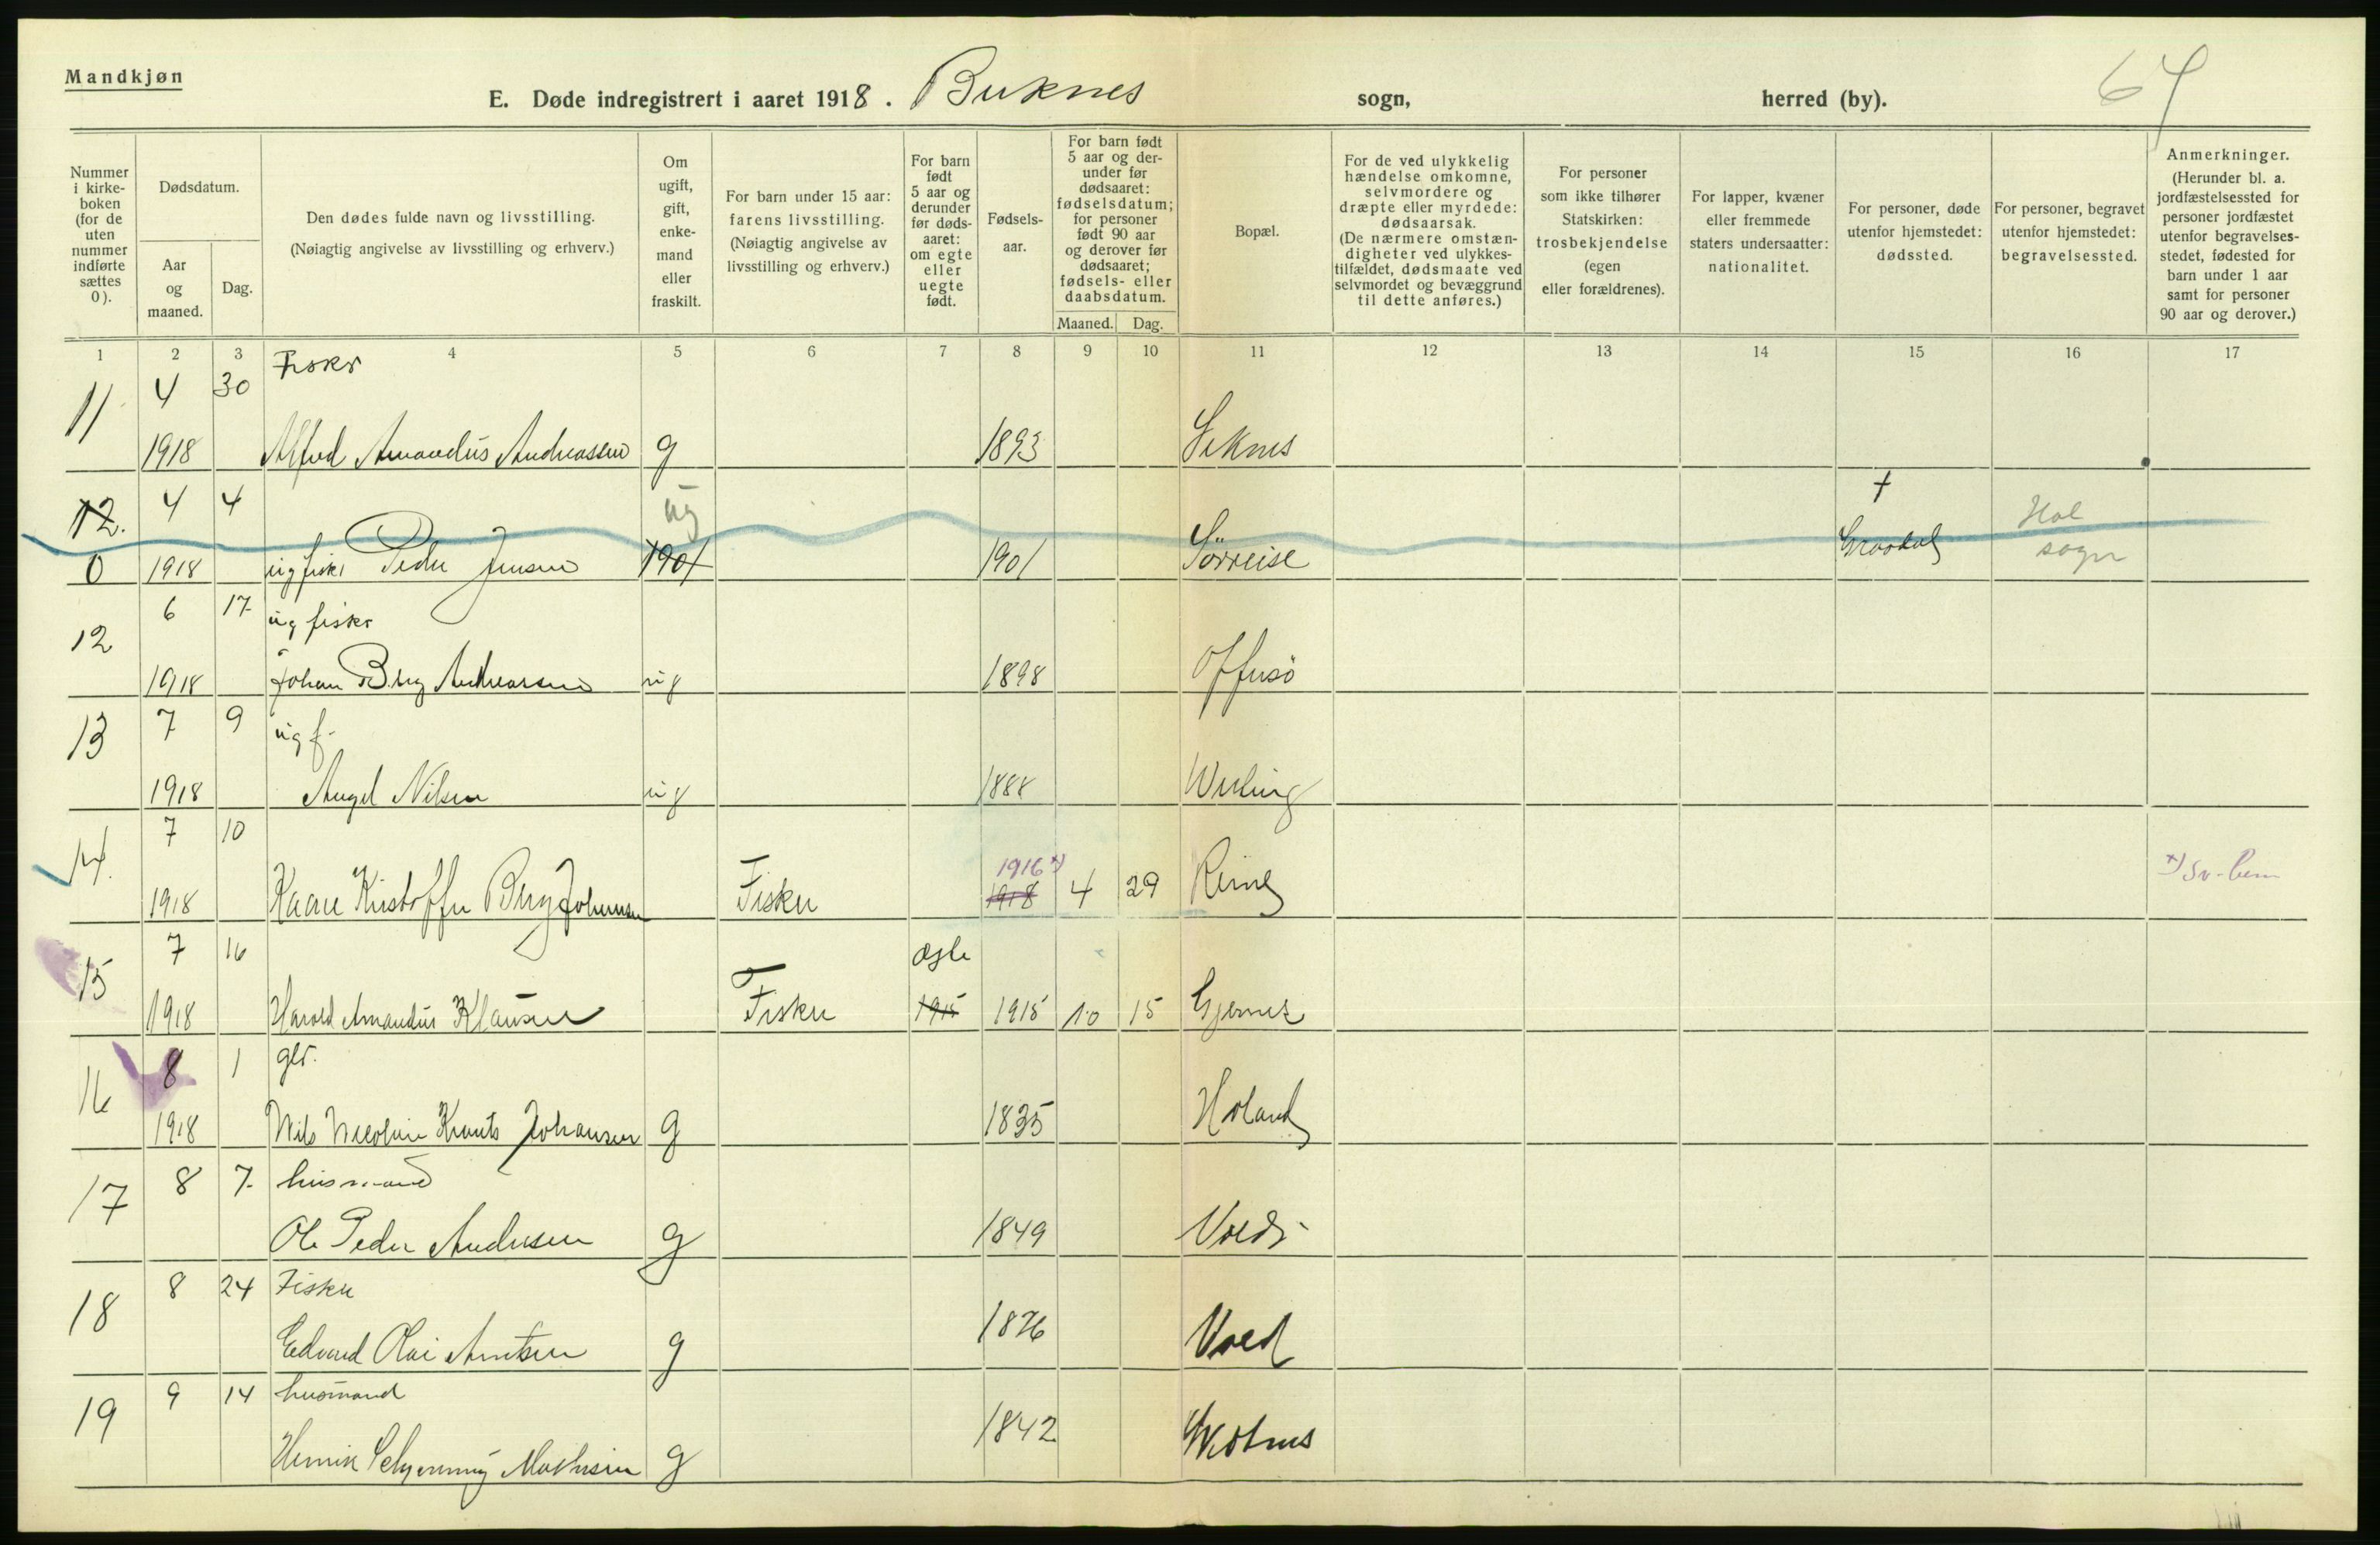 Mandkjøn
E. Døde indregistrert i aaret 1918. Buknes sogn, herred (by).
64
Nummer i kirke-boken (for de uten nummer indførte sættes 0).
Dødsdatum.
Aar og maaned.
Dag.
Den dødes fulde navn og livsstilling.
(Nøiagtig angivelse av livsstilling og erhverv.)
Om ugift, gift, enke-mand eller fraskilt.
For barn under 15 aar: farens livsstilling. (Nøiagtig angivelse av livsstilling og erhverv.)
For barn født 5 aar og derunder før døds-aaret: om egte eller uegte født.
Fødsels-aar.
For barn født 5 aar og der-under før dødsaaret: fødselsdatum; for personer født 90 aar og derover før dødsaaret; fødsels- eller daabsdatum.
Maaned. Dag.
Bopæl.
For de ved ulykkelig hændelse omkomne, selvmordere og dræpte eller myrdede: dødsaarsak. (De nærmere omstæn-digheter ved ulykkes-tilfældet, dødsmaate ved selvmordet og bevæggrund til dette anføres.)
For personer som ikke tilhører Statskirken: trosbekjendelse (egen eller forældrenes).
For lapper, kvæner eller fremmede staters undersaatter: nationalitet.
For personer, døde utenfor hjemstedet: dødssted.
For personer, begravet utenfor hjemstedet: begravelsessted.
Anmerkninger. (Herunder bl. a. jordfæstelsessted for personer jordfæstet utenfor begravelses-stedet, fødested for barn under 1 aar samt for personer 90 aar og derover.)
1 2 3 4 5 6 7 8 9 10 11 12 13 14 15 16 17
11 4 30 Fisker
1918 Alfred Amandus Andreassen g 1893
12. 4 4 ug +
0 1918 ug fisker Peder Jensen 1901 1901 Sørreise Hol sogn
12 6 17 ug fisker
1918 Johan Berg Andreassen ug 1898 Offersö
13 7 9 ug f.
1918 Angel Nilsen ug 1888
14. 7 10 1916 x)
1918 Kaare Kristoffer Berg Johansen Fisker 1918 4 29 x)
15 7 16 ægte
1918 Harold Amandus Klausen Fisker 1915 1915 10 15
16 8 1
1918 Nils Johansen g 1835 Holand
17 8 7 husmand
Ole Peder Andersen g 1849
18 8 24 Fisker
Edvard Olai Arntsen g 1876
19 9 14 husmand
g 1842